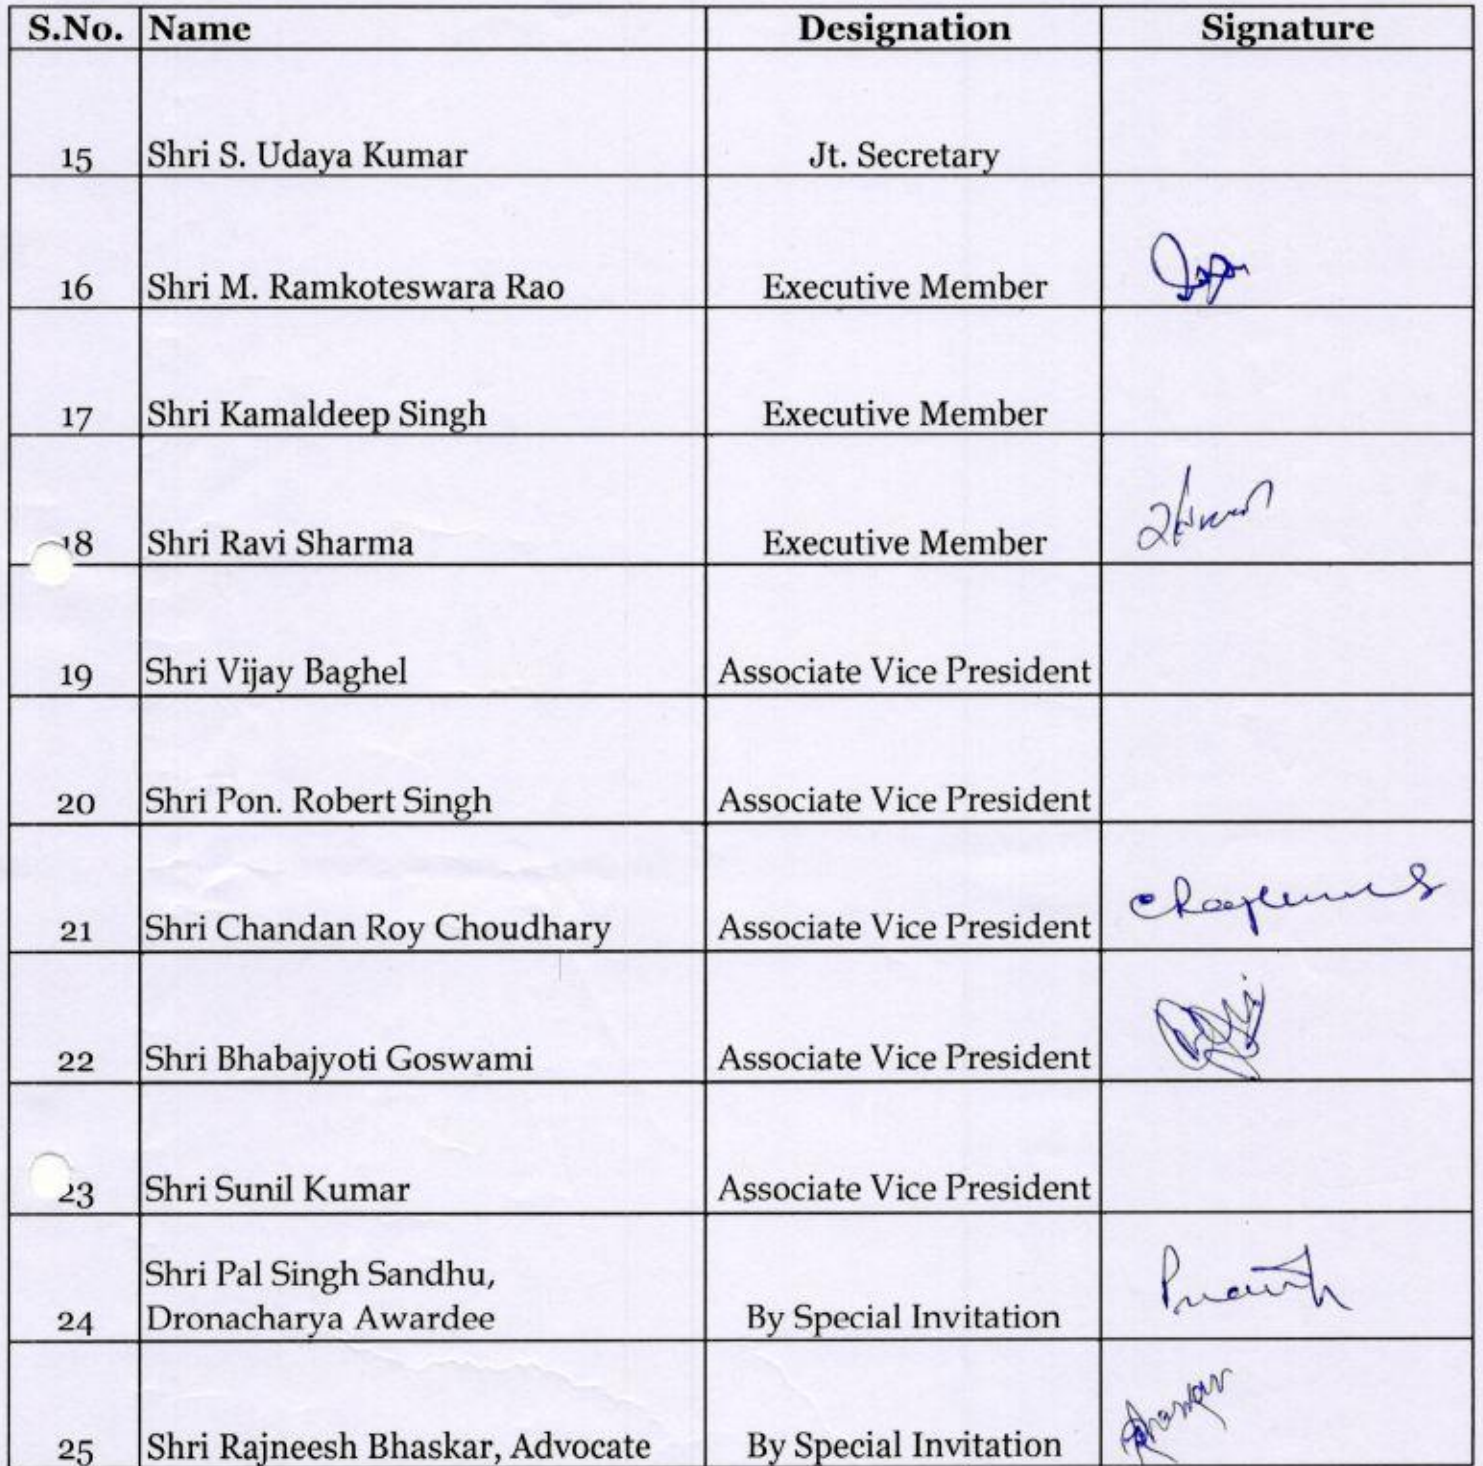 S.No. Name Designation Signature
15 Shri S. Udaya Kumar Jt. Secretary
16 Shri M. Ramkoteswara Rao Executive Member
17 Shri Kamaldeep Singh Executive Member
18 Shri Ravi Sharma Executive Member
19 Shri Vijay Baghel Associate Vice President
20 Shri Pon. Robert Singh Associate Vice President
21 Shri Chandan Roy Choudhary Associate Vice President
22 Shri Bhabajyoti Goswami Associate Vice President
23 Shri Sunil Kumar Associate Vice President
Shri Pal Singh Sandhu,
24 Dronacharya Awardee By Special Invitation
25 Shri Rajneesh Bhaskar, Advocate By Special Invitation